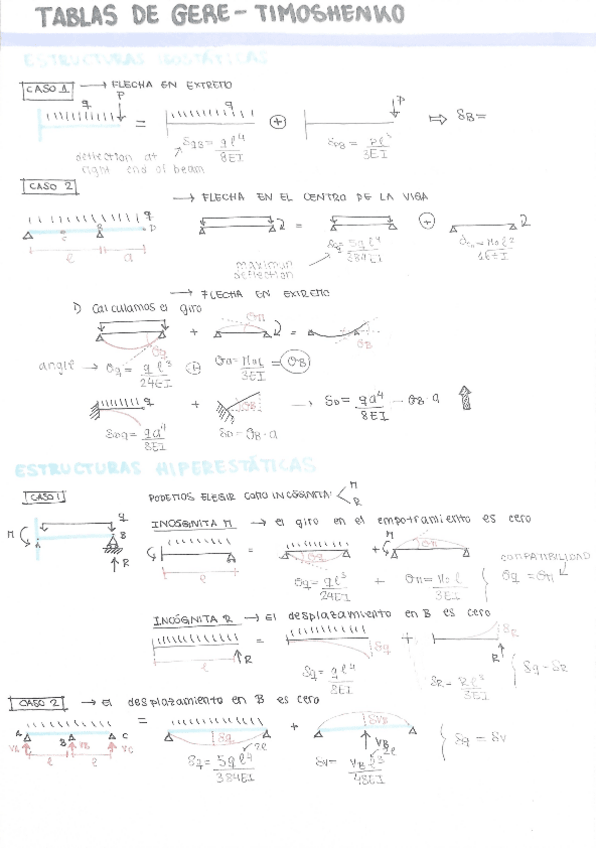 TABLAS DE GERE - TIMOSHENKO
ESTRUCTURAS ISOSTÁTICAS
CASO 1 → FLECHA EN EXTREMO
P
q
q
P
= ⊕ ⇒ δB =
δqB = qℓ⁴/8EI
δPB = Pℓ³/3EI
deflection at
right end of beam
CASO 2
→ FLECHA EN EL CENTRO DE LA VIGA
q
A C B D
ℓ a
= ⊕
δq = 5qℓ⁴/384EI
maximun
deflection
→ FLECHA EN EXTREMO
1) Calculamos el giro
θM
+ =
θq
θB
angle → θq = qℓ³/24EI ⊕ = θB
q + θB → δD = qa⁴/8EI - θB·a
δDq = qa⁴/8EI
δD = θB·a
ESTRUCTURAS HIPERESTÁTICAS
CASO 1
PODEMOS ELEGIR COMO INCÓGNITA: M
R
INCÓGNITA M → el giro en el empotramiento es cero
q
M A B
R
= + M
θq
θM
ℓ
COMPATIBILIDAD
θq = qℓ³/24EI + θM = M₀ℓ/3EI θq = θM
INCÓGNITA R → El desplazamiento en B es cero
= +
δq
δR
ℓ R
R
δq = qℓ⁴/8EI δR = Rℓ³/3EI δq = δR
CASO 2 → el desplazamiento en B es cero
A B C
VA VB VC
ℓ ℓ
= +
δq
δVB
VB
2ℓ
2ℓ
δq = 5qℓ⁴/384EI δV = VBℓ³/48EI δq = δV